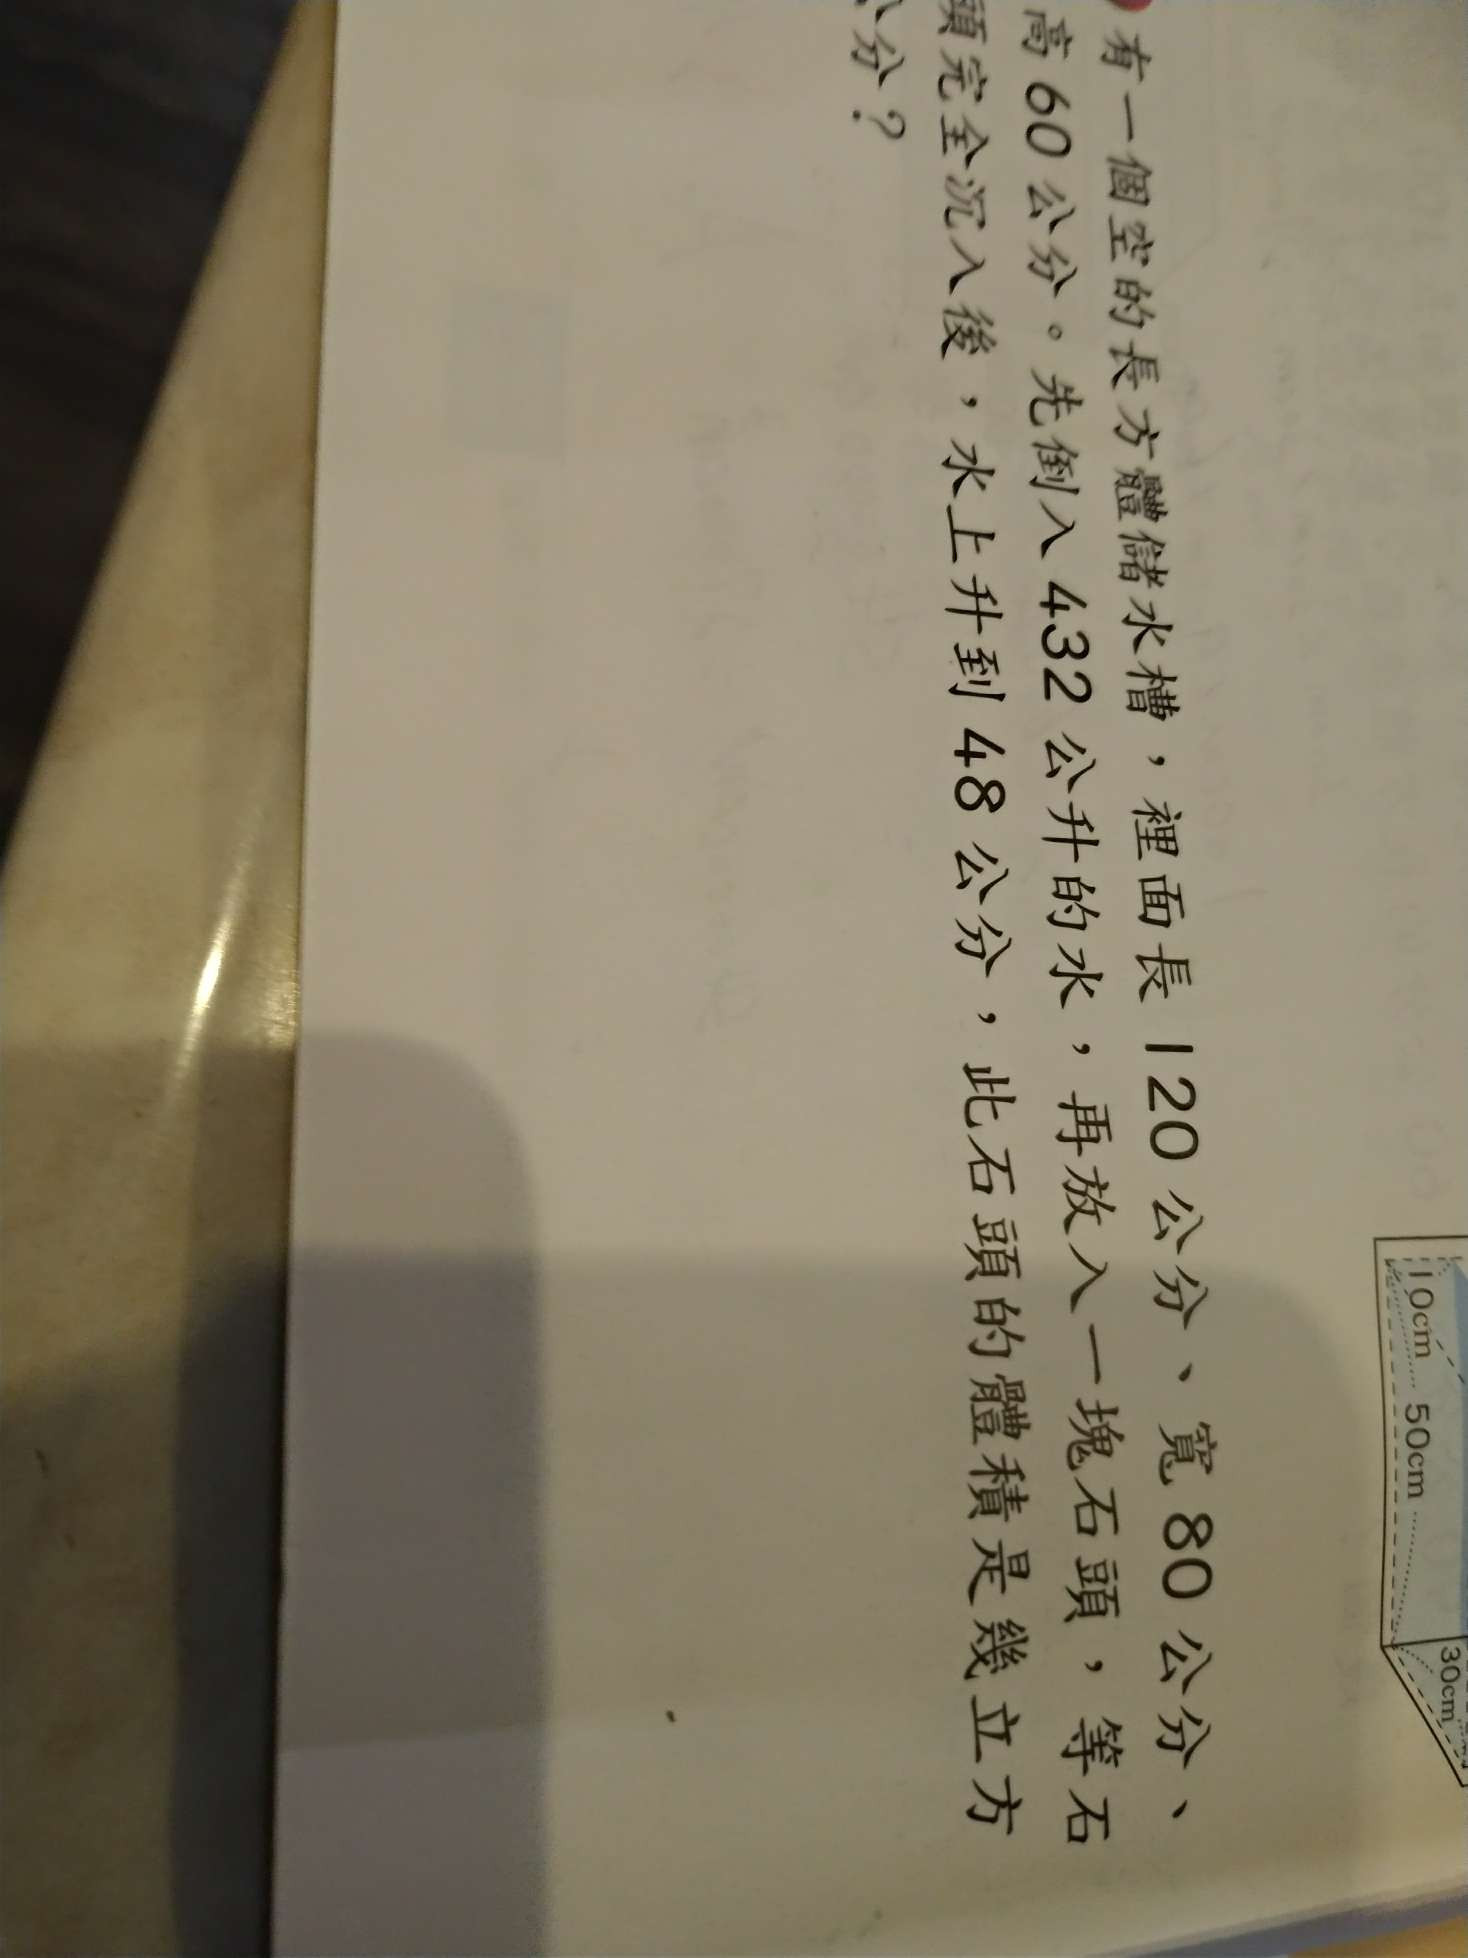 有一個空的長方體儲水槽，裡面長 120 公分、寬 80 公分、
高 60 公分。先倒入 432 公升的水，再放入一塊石頭，等石
頭完全沉入後，水上升到 48 公分，此石頭的體積是幾立方
公分？
10cm
50cm
30cm